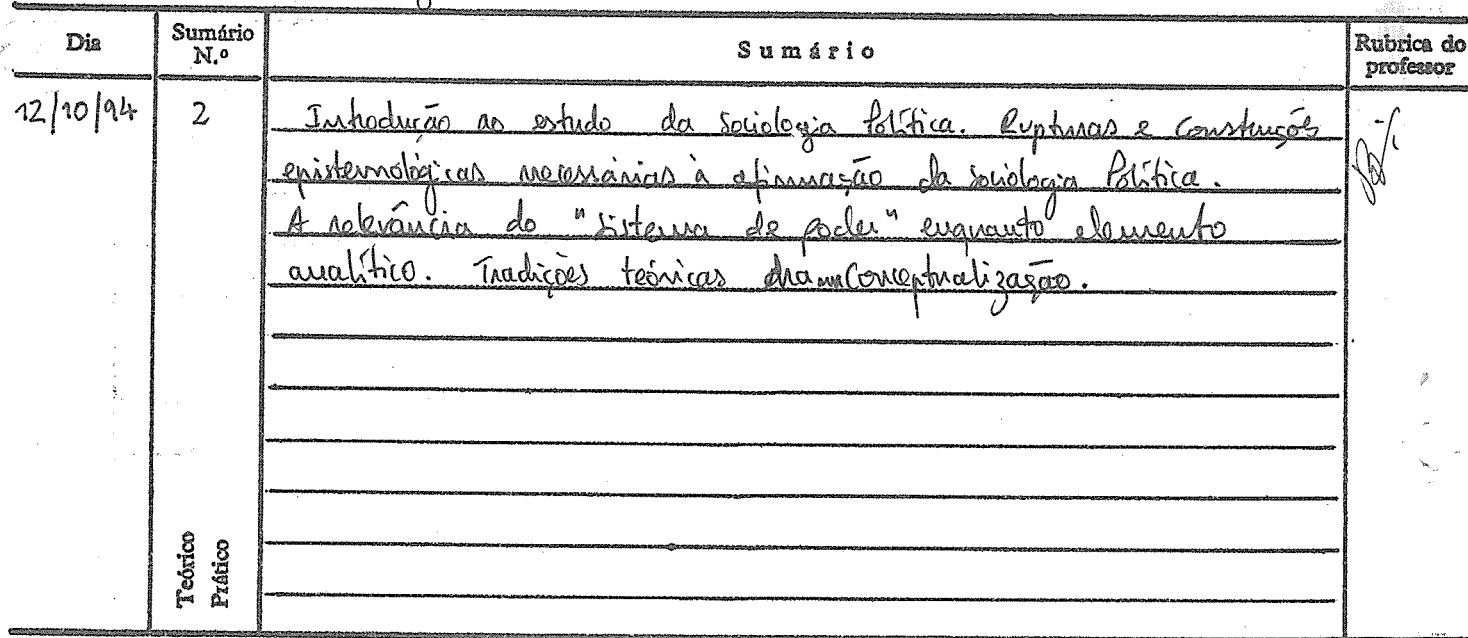 Dia
Sumário N.º
Sumário
Rubrica do professor
12/10/94
2
Introdução ao estudo da Sociologia Política. Rupturas e Construções
epistemológicas necessárias à afirmação da Sociologia Política.
A relevância do "sistema de poder" enquanto elemento
analítico. Tradições teóricas Conceptualização.
Teórico
Prático